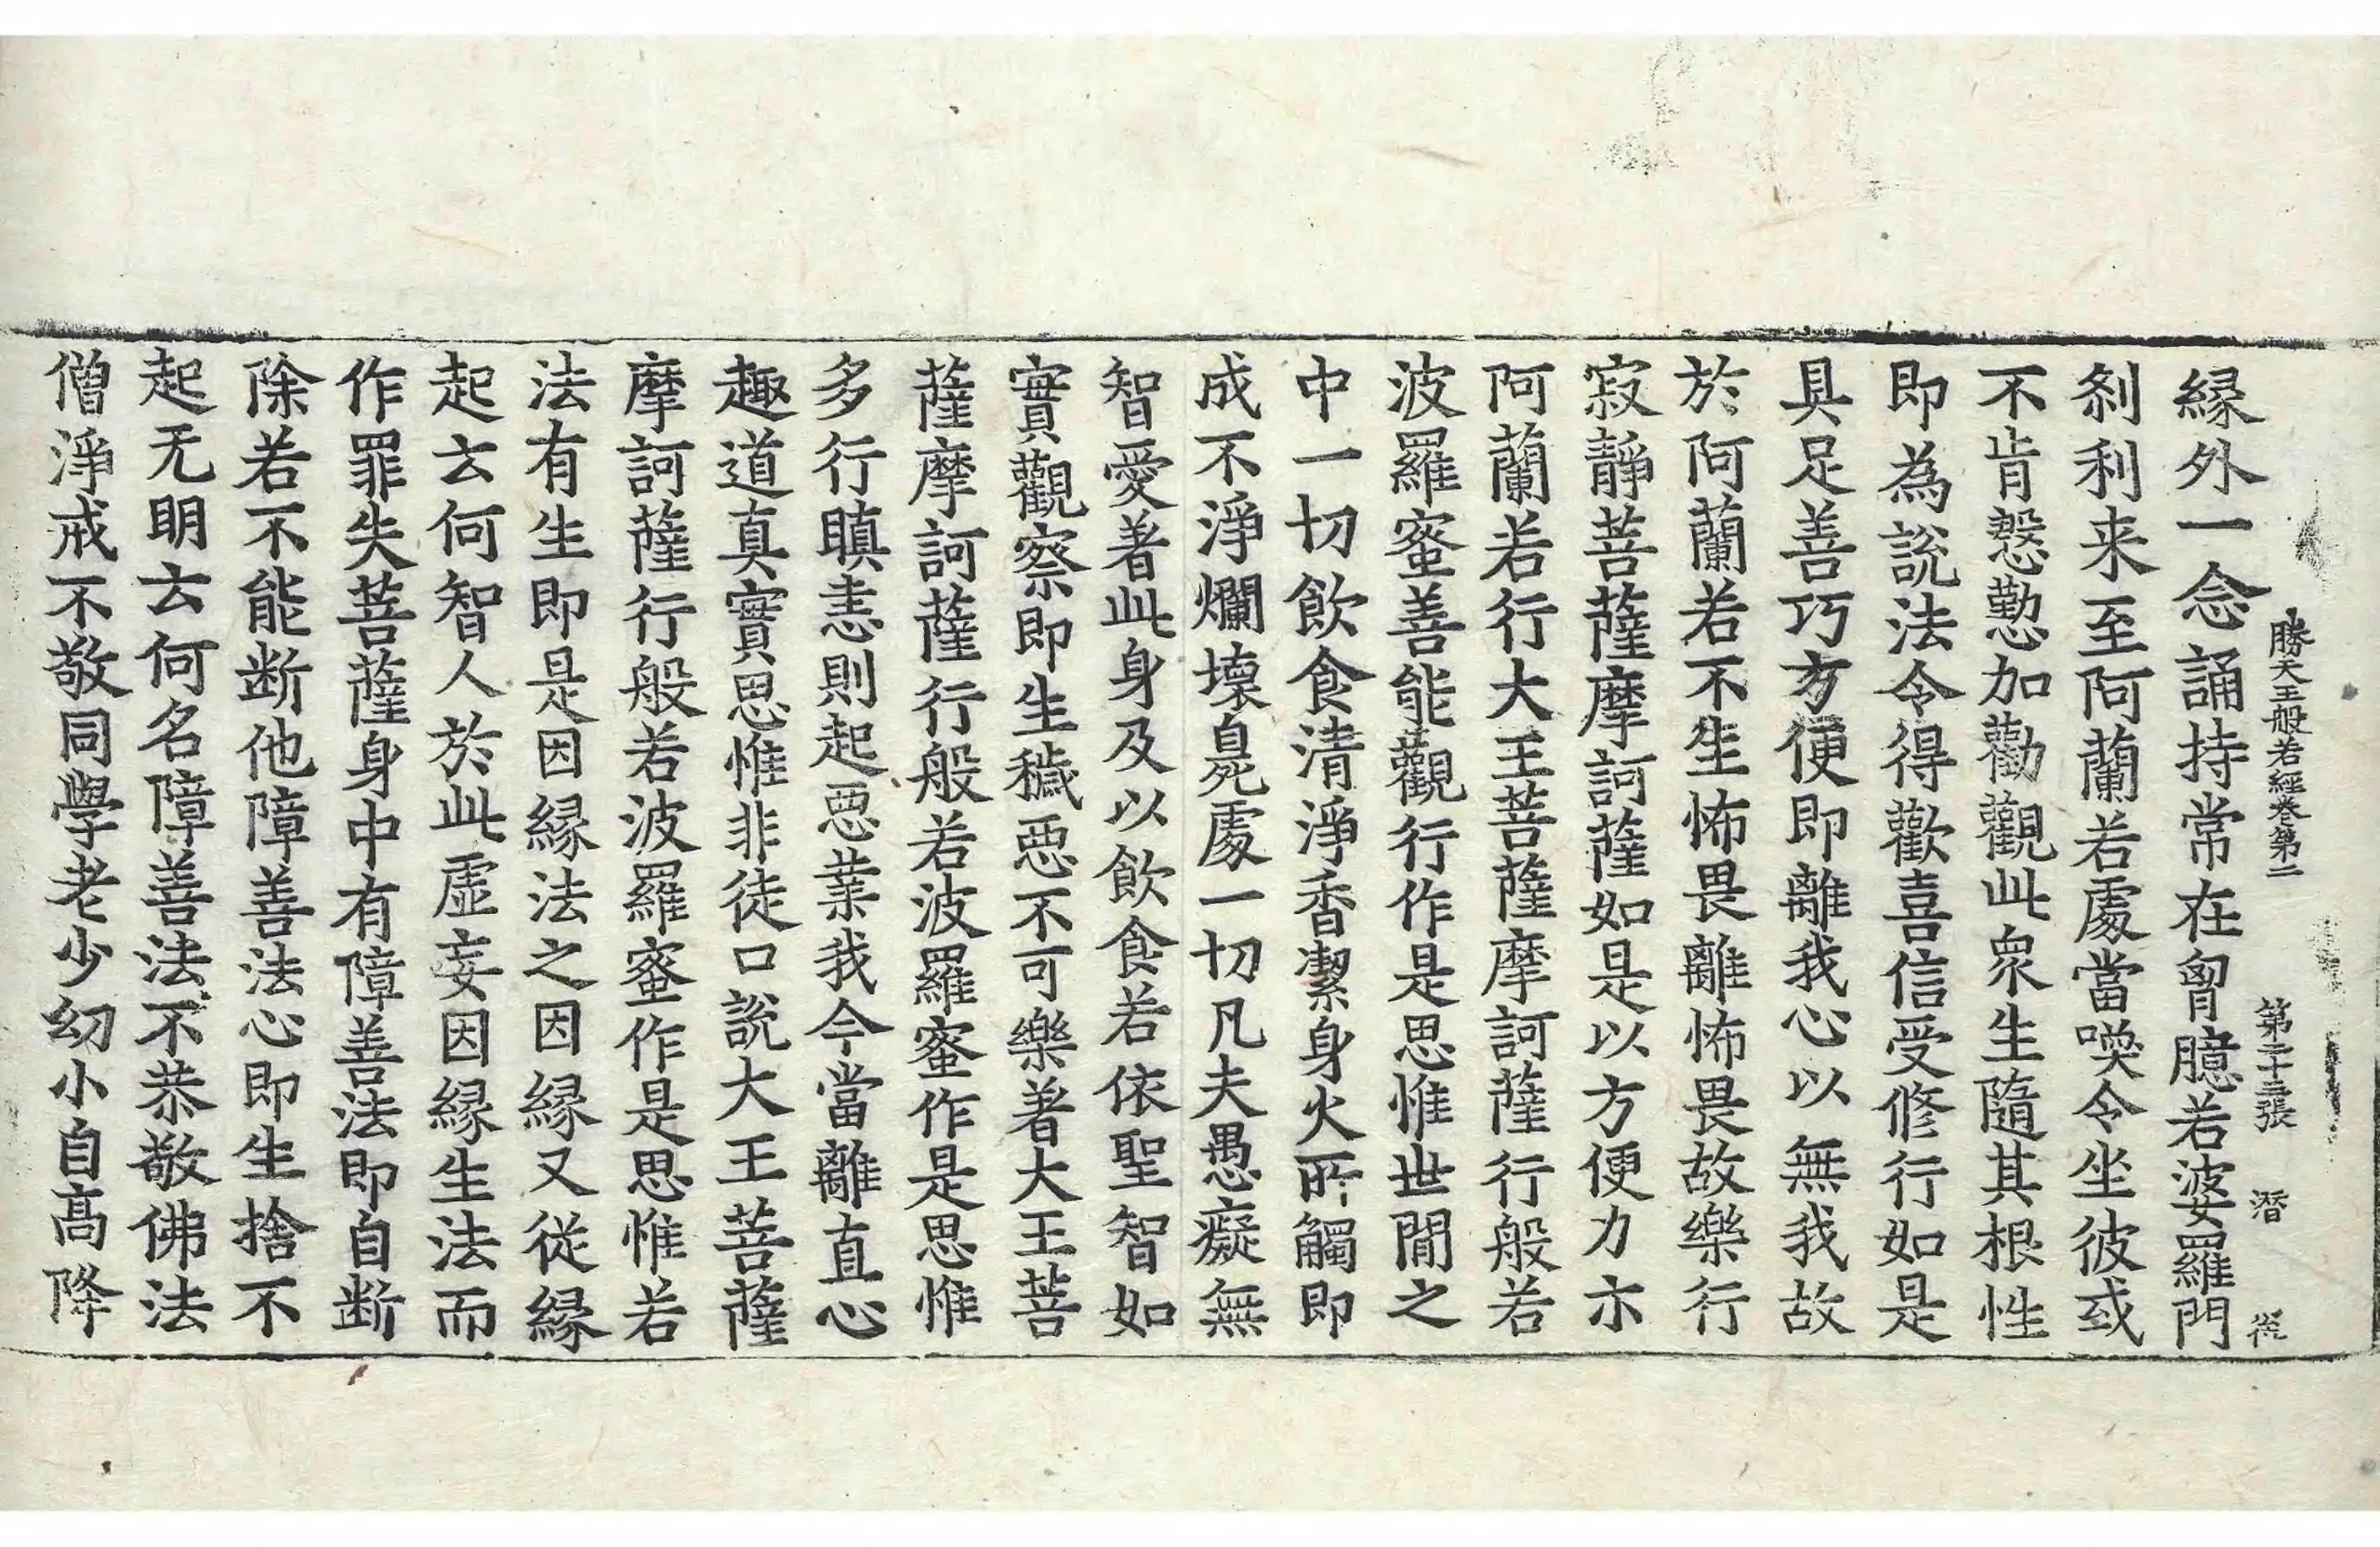 勝天王般若經卷第二　第二十三張　潛
緣外一念誦持常在胷臆若婆羅門
刹利来至阿蘭若處當喚令坐彼或
不肯慇懃加勸觀此衆生隨其根性
即為說法令得歡喜信受修行如是
具足善巧方便即離我心以無我故
於阿蘭若不生怖畏離怖畏故樂行
寂靜菩薩摩訶薩如是以方便力亦
阿蘭若行大王菩薩摩訶薩行般若
波羅蜜善能觀行作是思惟世間之
中一切飲食清淨香潔身火所觸即
成不淨爛壞臭處一切凡夫愚癡無
智愛著此身及以飲食若依聖智如
實觀察即生穢惡不可樂著大王菩
薩摩訶薩行般若波羅蜜作是思惟
多行瞋恚則起惡業我今當離直心
趣道真實思惟非徒口說大王菩薩
摩訶薩行般若波羅蜜作是思惟若
法有生即是因緣法之因緣又從緣
起云何智人於此虛妄因緣生法而
作罪失菩薩身中有障善法即自断
除若不能断他障善法心即生捨不
起无明云何名障善法不恭敬佛法
僧淨戒不敬同學老少幼小自高降